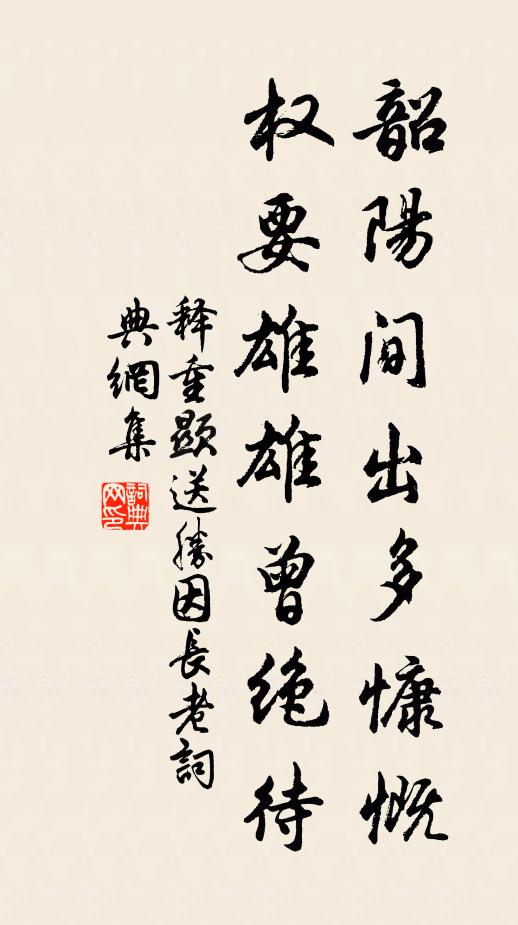 韶陽間出多慷慨
权要雄雄曾绝待
释重顯送勝因長老詞
典網集
詞典网印